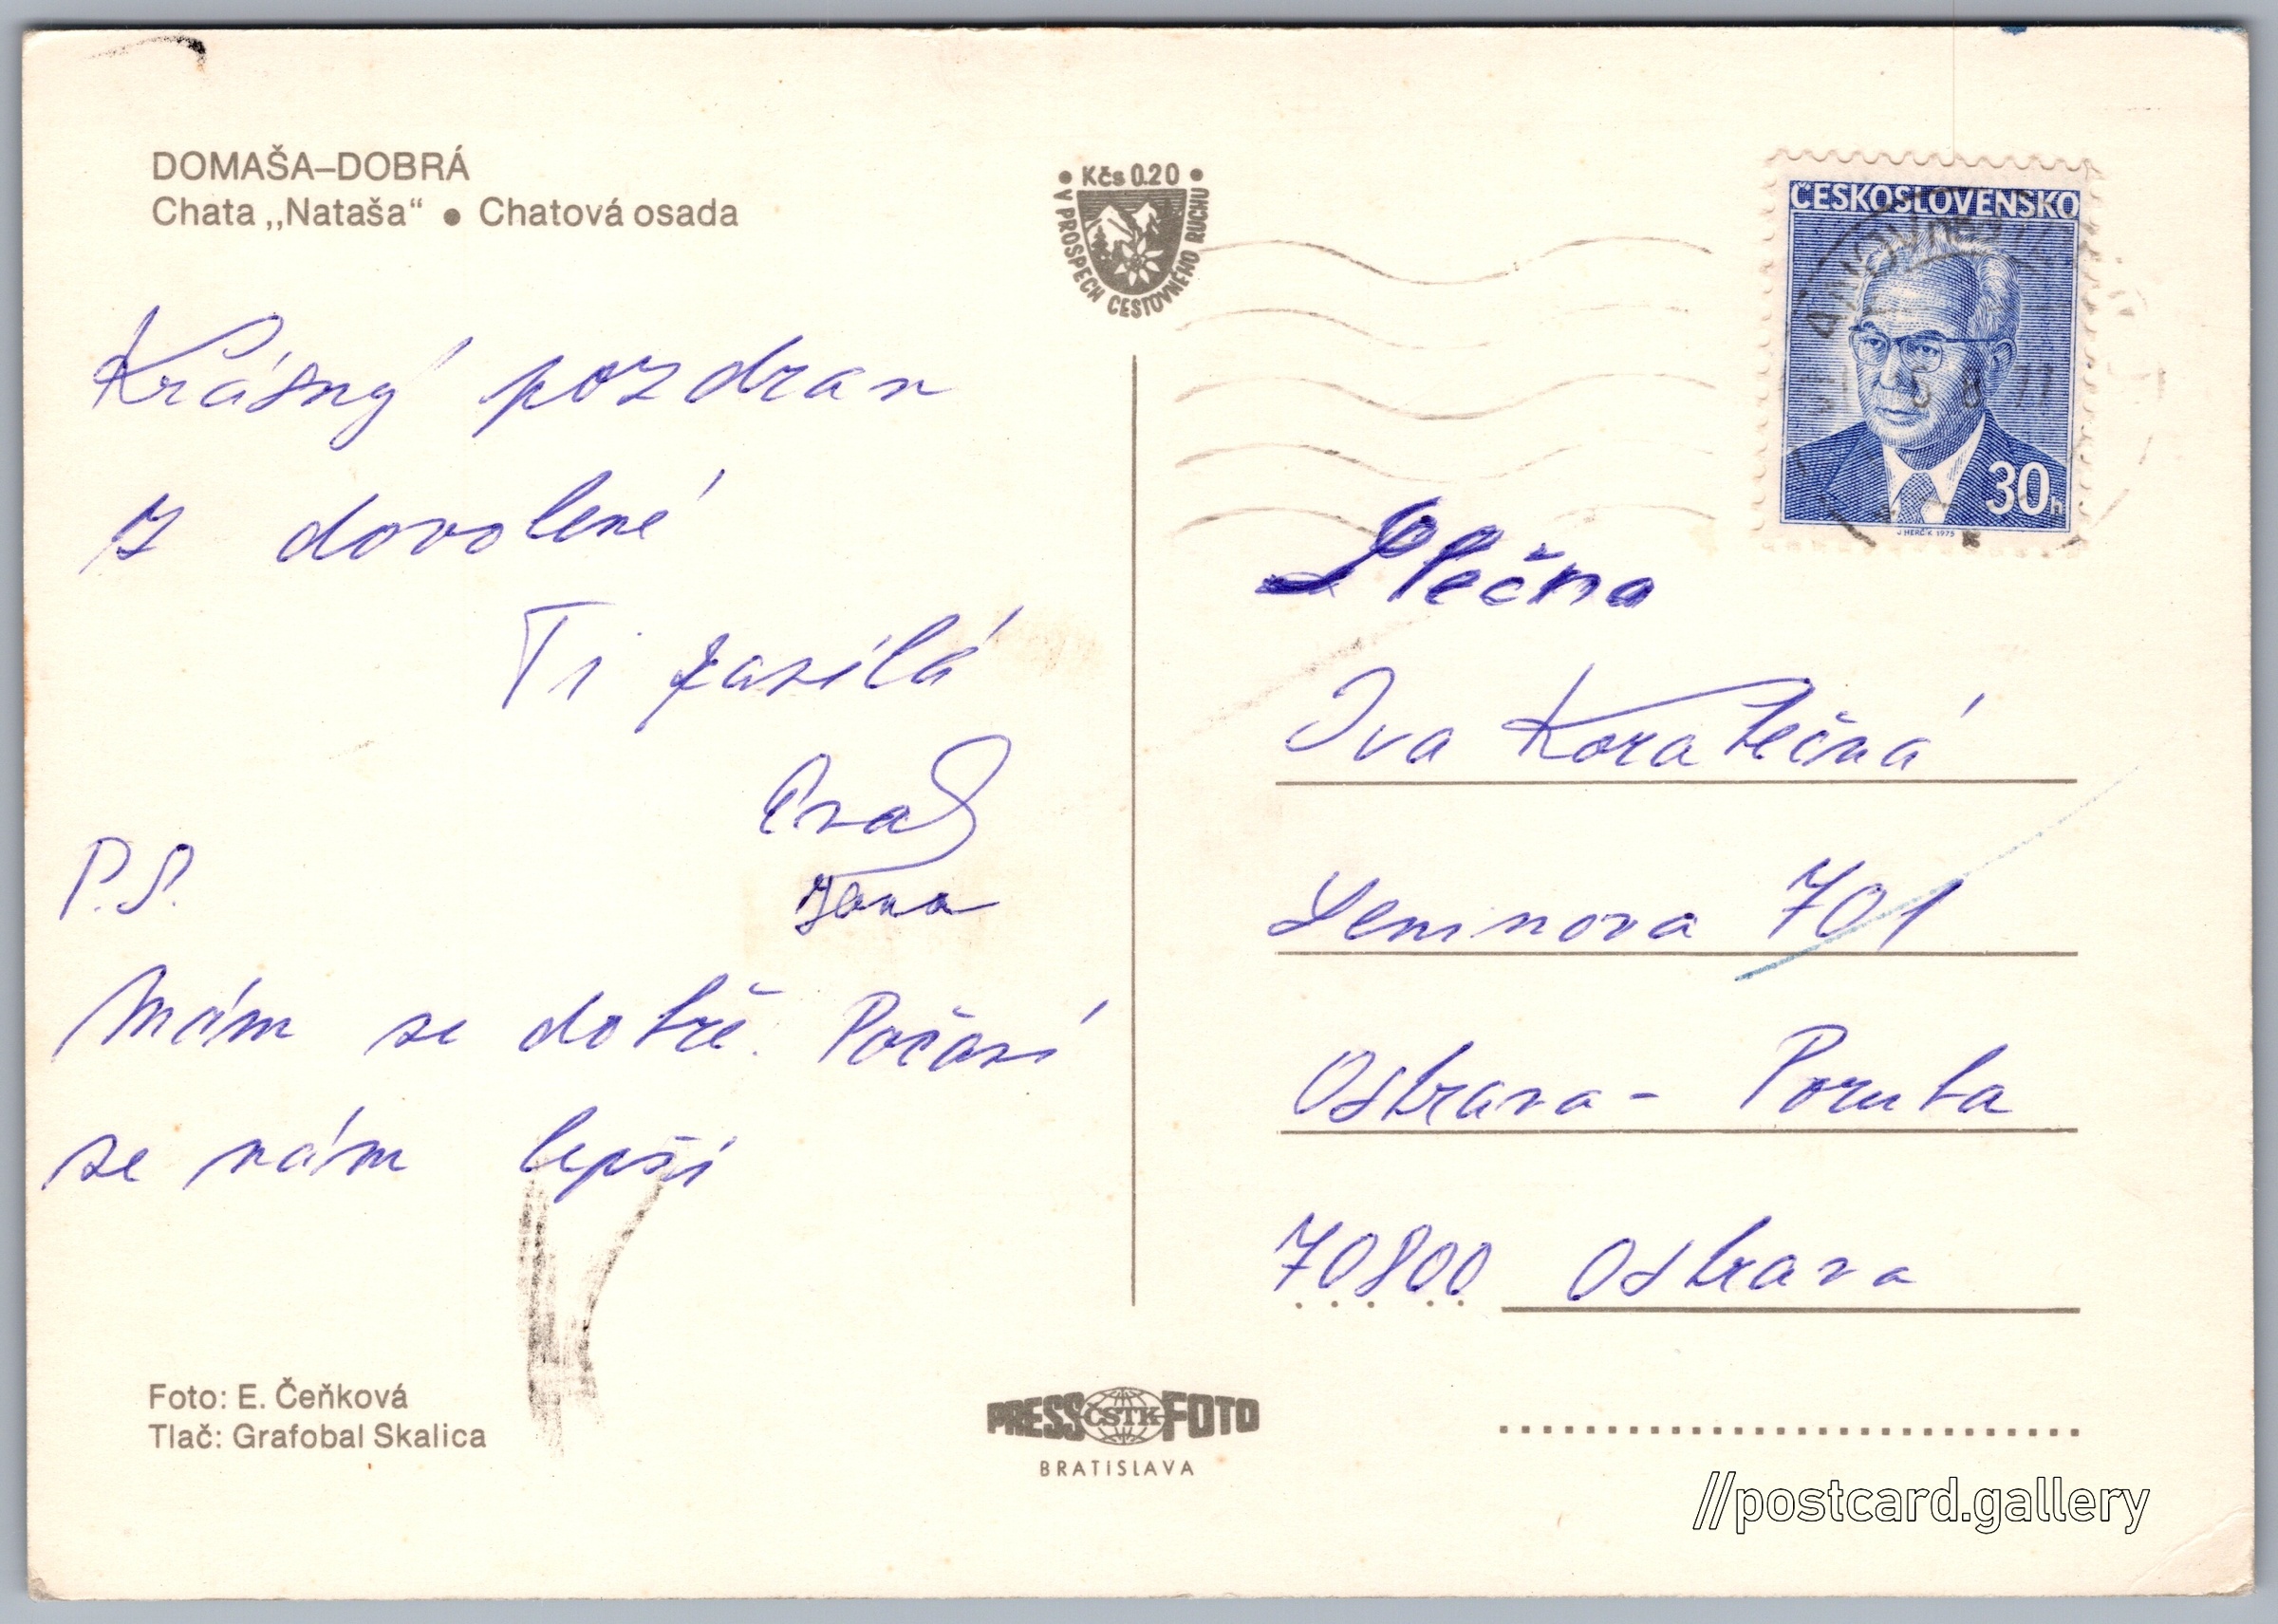 DOMAŠA–DOBRÁ
Chata „Nataša“ ● Chatová osada
• Kčs 0.20 •
V PROSPECH CESTOVNÉHO RUCHU
ČESKOSLOVENSKO
30h
J HERČÍK 1975
Krásný pozdrav
z dovolené
Ti zasílá
Jana
P.S.
Mám se dobře. Počasí
se nám lepší
Slečna
Iva Korabečná
Leninova 701
Ostrava - Poruba
70800 Ostrava
Foto: E. Čeňková
Tlač: Grafobal Skalica
PRESS ČSTK FOTO
BRATISLAVA
//postcard.gallery